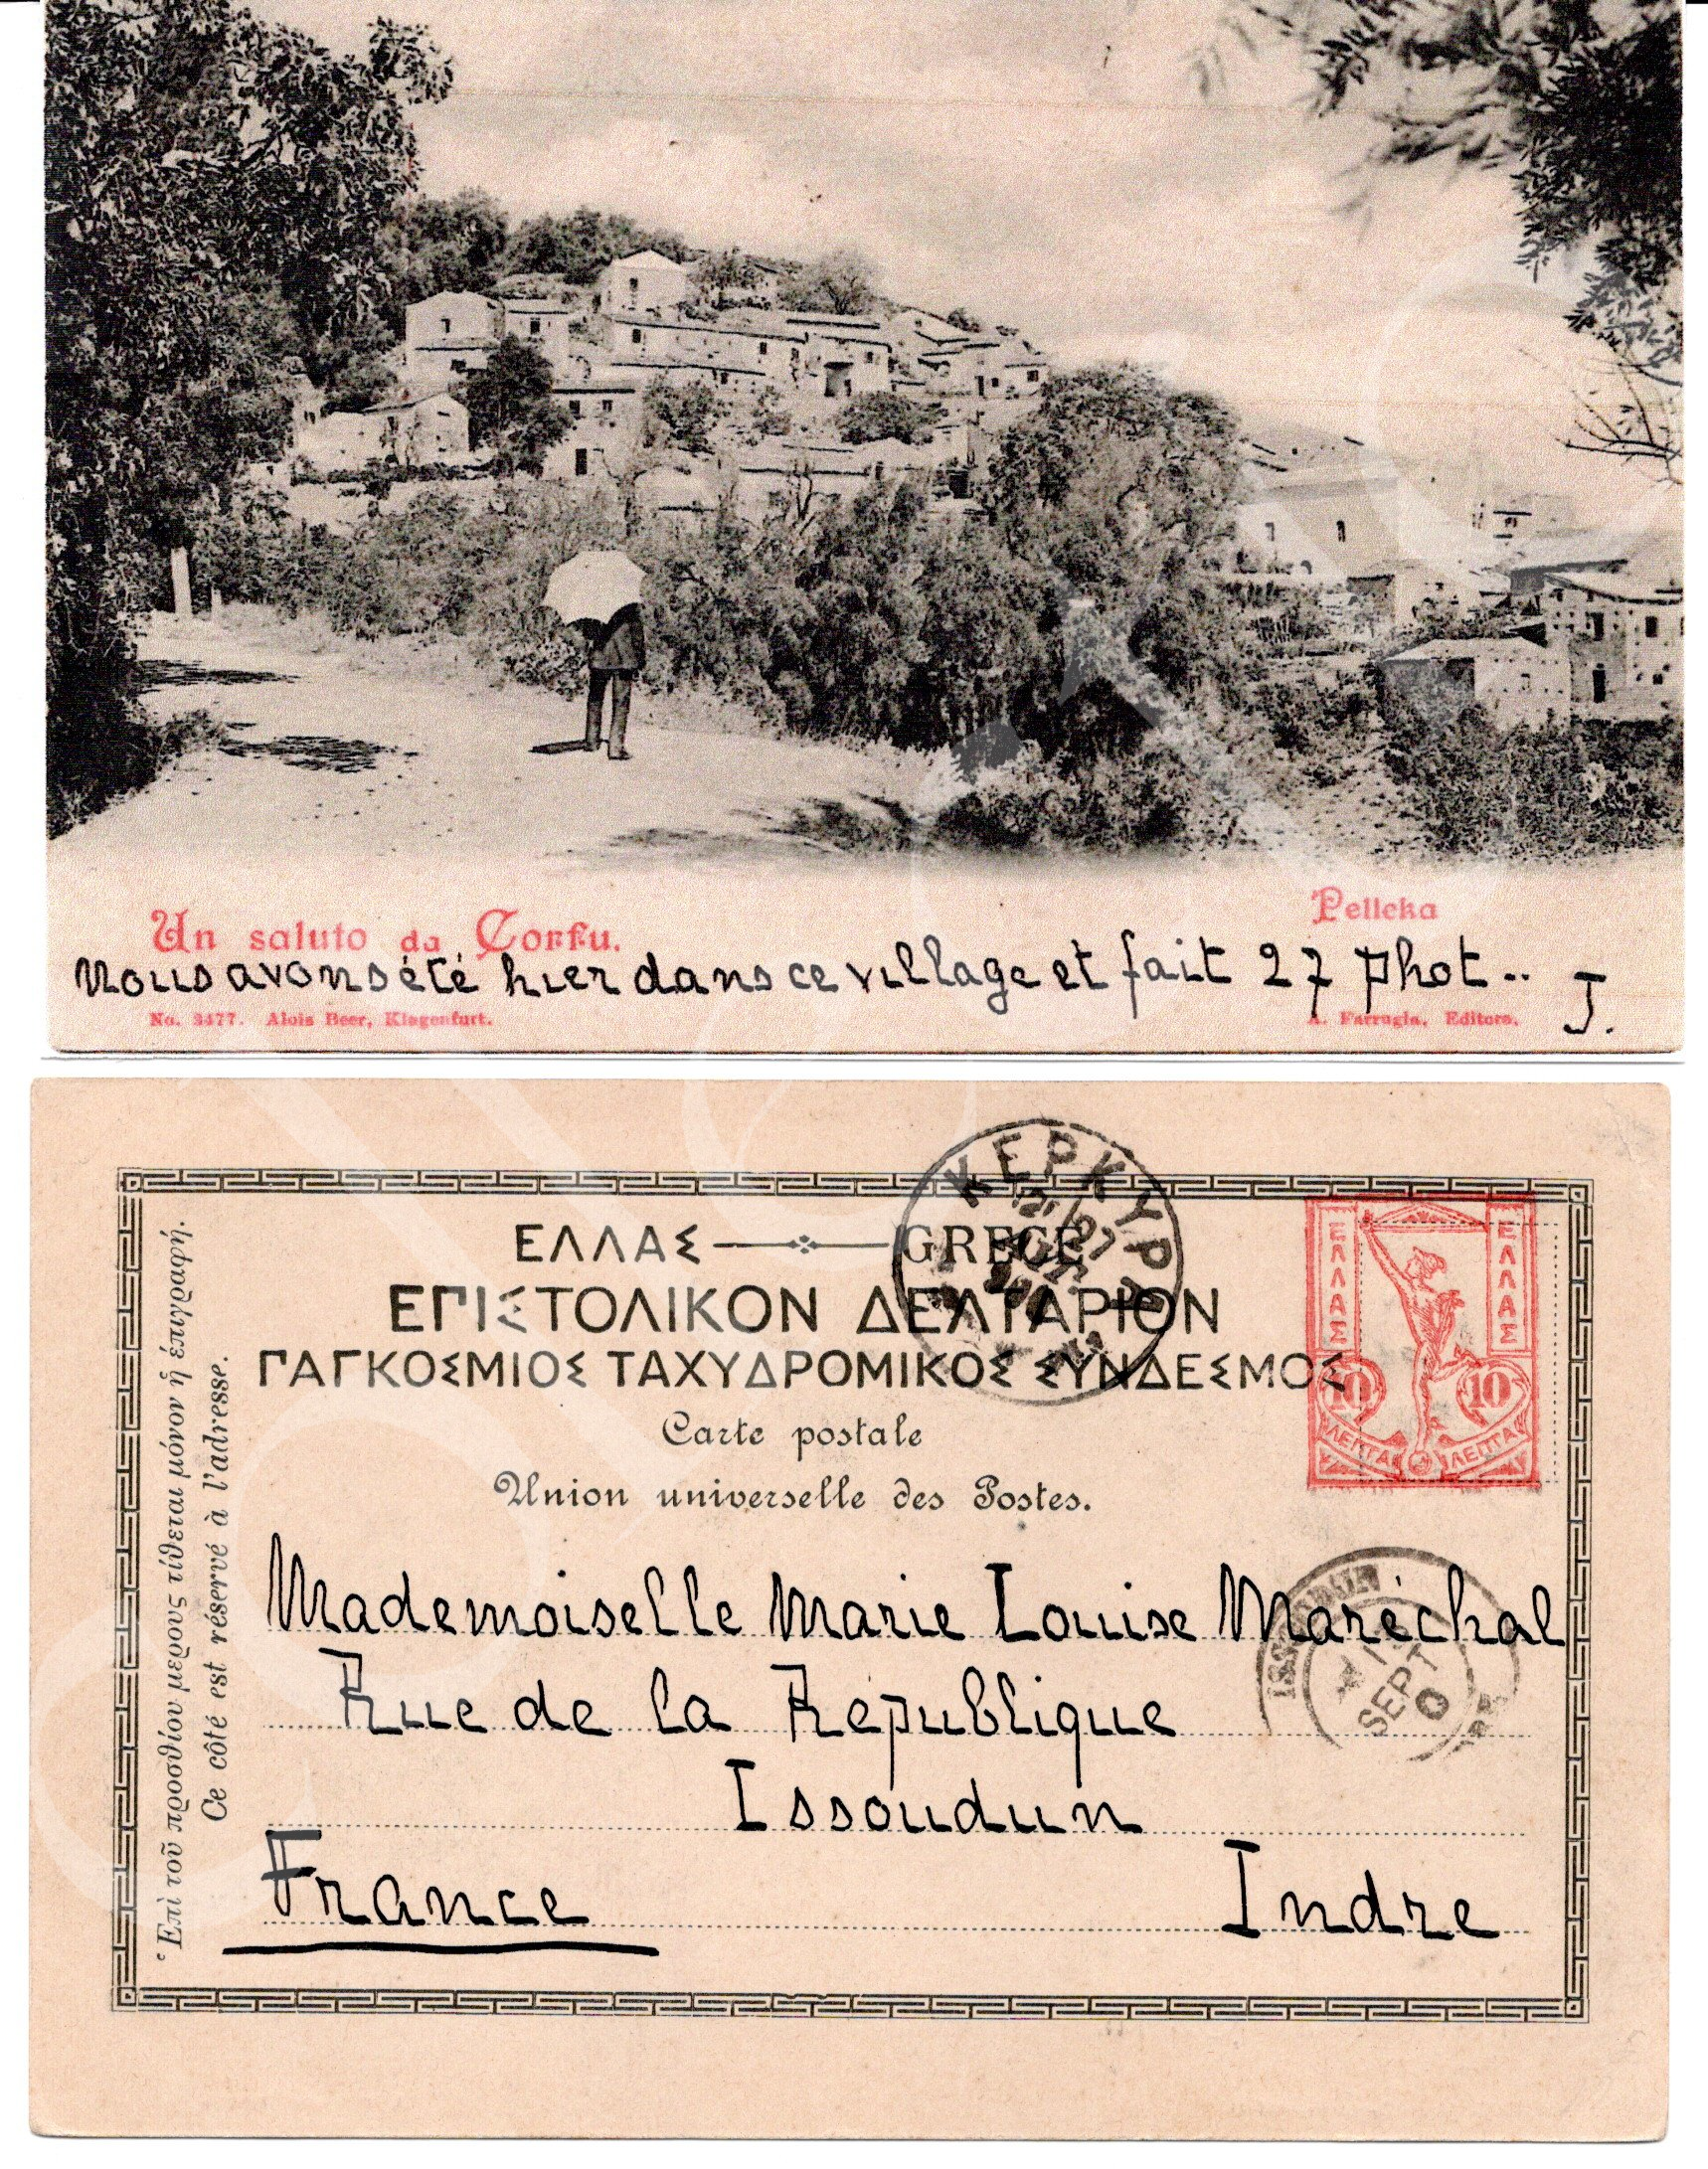 Un saluto da Corfu.
Pelleka
Nous avons été hier dans ce village et fait 27 phot.. J.
No. 3477. Alois Beer, Klagenfurt.
A. Farrugia, Editore.
ΚΕΡΚΥΡΑ
ΕΛΛΑΣ GRECE
ΕΠΙΣΤΟΛΙΚΟΝ ΔΕΛΤΑΡΙΟΝ
ΠΑΓΚΟΣΜΙΟΣ ΤΑΧΥΔΡΟΜΙΚΟΣ ΣΥΝΔΕΣΜΟΣ
Carte postale
Union universelle des Postes.
ΕΛΛΑΣ ΕΛΛΑΣ
10 10
ΛΕΠΤΑ ΛΕΠΤΑ
Ἐπὶ τοῦ προσθίου μερους τίθεται μόνον ἡ ἐπιγραφή.
Ce côté est réservé à l'adresse.
Mademoiselle Marie Louise Maréchal
Rue de la République
Issoudun
France Indre
SEPT